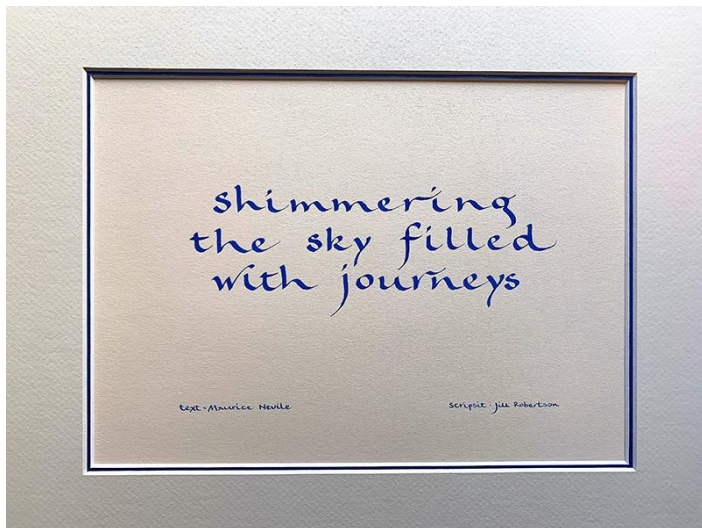 shimmering
the sky filled
with journeys
text · Maurice Nevile
Scripsit · Jill Robertson